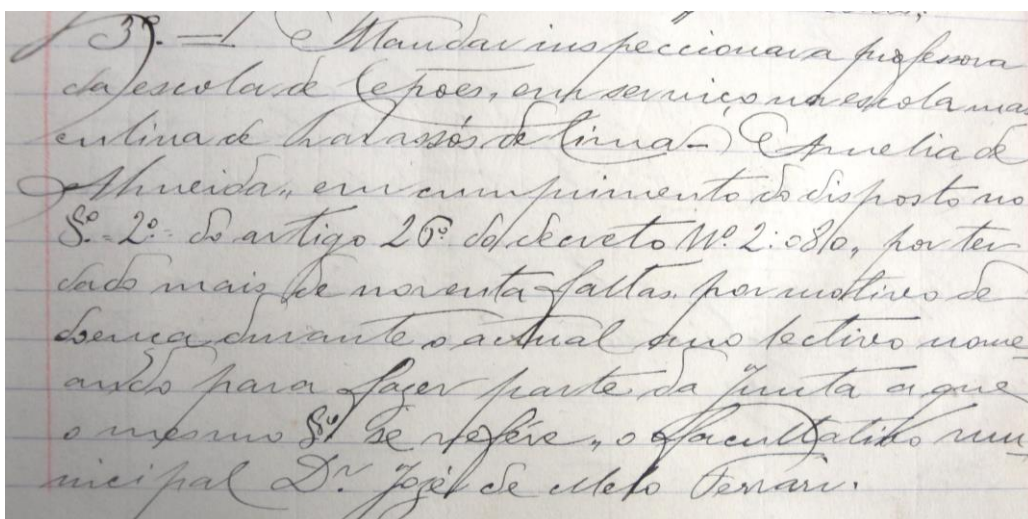 3º. — Mandar inspeccionar a professora
da escola de Cepões, em serviço na escola mas
culina de de Lima — Amelia de
Almeida, em cumprimento do disposto no
§º. 2º. do artigo 26º do decreto Nº. 2:080, por ter
dado mais de noventa faltas por motivo de
doença durante o actual ano lectivo nome_
ando para fazer parte da Junta a que
o mesmo §º se refére, o facultativo mu_
nicipal Dr. José de Melo Ferrari.